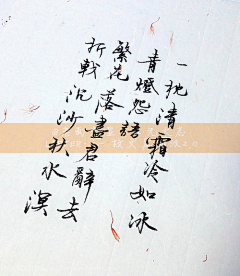 一抔清霜冷如冰
青燈怨語
繁花落盡君辭去
折戟沉沙秋水溟